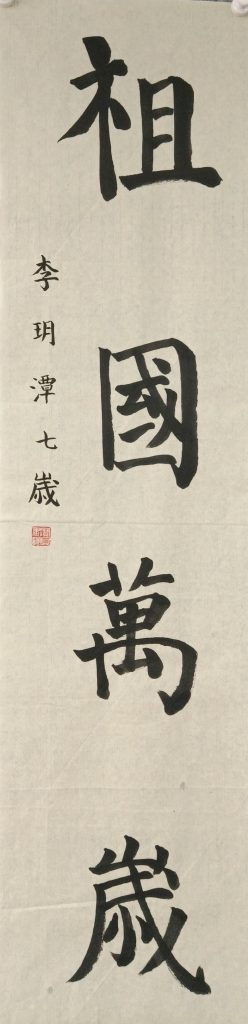 祖國萬歲
李玥潭七歲